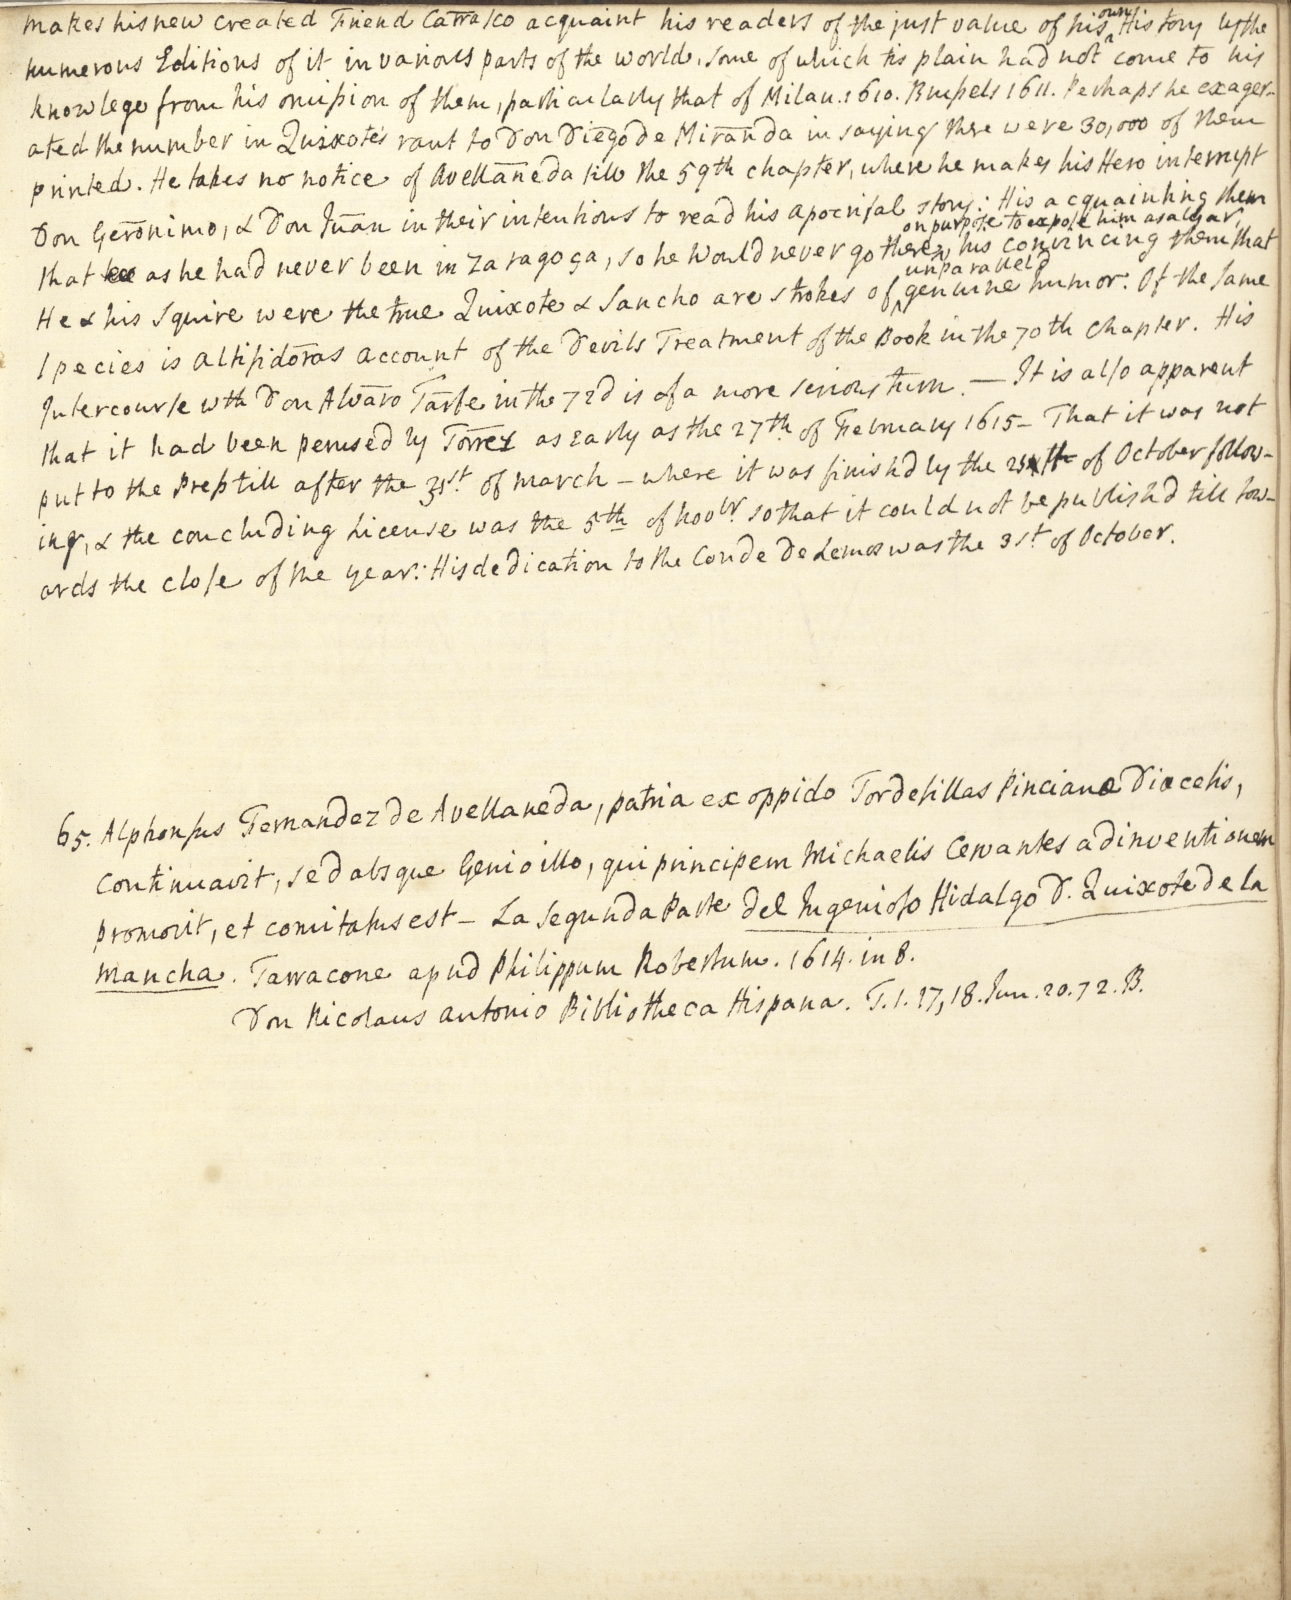 makes his new created Friend Carrasco acquaint his readers of the just value of his own History by the
numerous Editions of it in various parts of the world, some of which tis plain had not come to his
knowlege from his omission of them, particularly that of Milan. 1610. Brussels 1611. Perhaps he exager-
ated the number in Quixote's rant to Don Diego de Miranda in saying there were 30,000 of them
printed. He takes no notice of Avellaneda till the 59th chapter, where he makes his Hero interrupt
Don Gerōnimo, & Don Juan in their intentions to read his apocrifal story: His acquainting them
that as he had never been in Zaragoça, so he would never go there on purpose to expose him as a lyar,
his convincing them that
He & his Squire were the true Quixote & Sancho are strokes of unparallel'd genuine humor: Of the same
species is Altisidōras account of the Devils Treatment of the Book in the 70th chapter. His
Intercourse wth Don Alvāro Tarfe in the 72d is of a more serious turn. — It is also apparent
that it had been perused by Torres as early as the 27th of February 1615 - That it was not
put to the Press till after the 31st of march - where it was finish'd by the of October follow-
ing, & the concluding License was the 5th of Novbr. so that it could not be publish'd till tow-
ards the close of the year: His dedication to the Conde De Lemos was the 31st of October.
65. Alphonsus Fernandez de Avellaneda, patria ex oppido Tordesillas Pincianae Diocesis,
continuavit, sed absque Genio illo, qui principem Michaelis Cervantes ad inventionem
promovit, et comitatus est - La Segunda Parte del Ingenioso Hidalgo D. Quixote de la
Mancha. Tarracone apud Philippum Robertum. 1614. in 8.
Don Nicolaus Antonio Bibliotheca Hispana. T. 1. 17, 18. Jun. 20. 72. B.